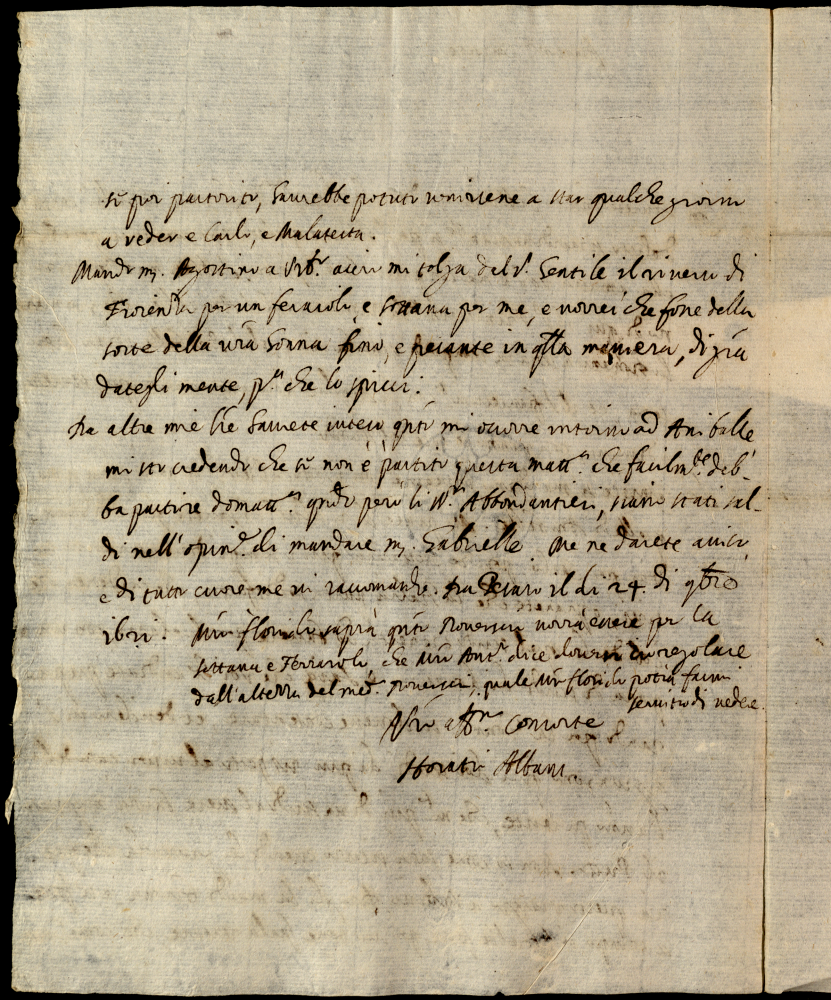 se poi partorite, havrebbe potuto venirsene a star qualche giorno
a veder e Carlo, e Malatesta.
Mando m. Agostino a Urb.º acciò mi tolga dal S.r Gentile il rivescio di
Fiorenza per un feraiolo, e sottana per me, e vorrei che fosse della
sorte della vrã Sonna fino, e pesante in qlla maniera, di grã
dategli mente, p.a che lo spicci.
Da altre mie lrẽ havrete inteso qnto mi occorre intorno ad Aniballe
mi sto credendo che se non è partito questa matt.na che facilm.te deb-
ba partire domatt.na qndo però li SS.ri Abbondantieri, siano stati sal-
di nell'opin.e di mandare m. Gabrielle. Me ne darete aviso,
e di tutto cuore me vi raccomando. Da Pesaro il dì 24. di 9bre
Mrõ Florido saprà qnto rovescio vorrà essere per la
sottana e Ferraiolo, che Mrõ Ant.o dice doversi regolare
dall'altezza del med.o rovescio, quale Mrõ Florido potrà farmi
servitio di vedere.
Vrõ aff.mo Consorte
Horatio Albani